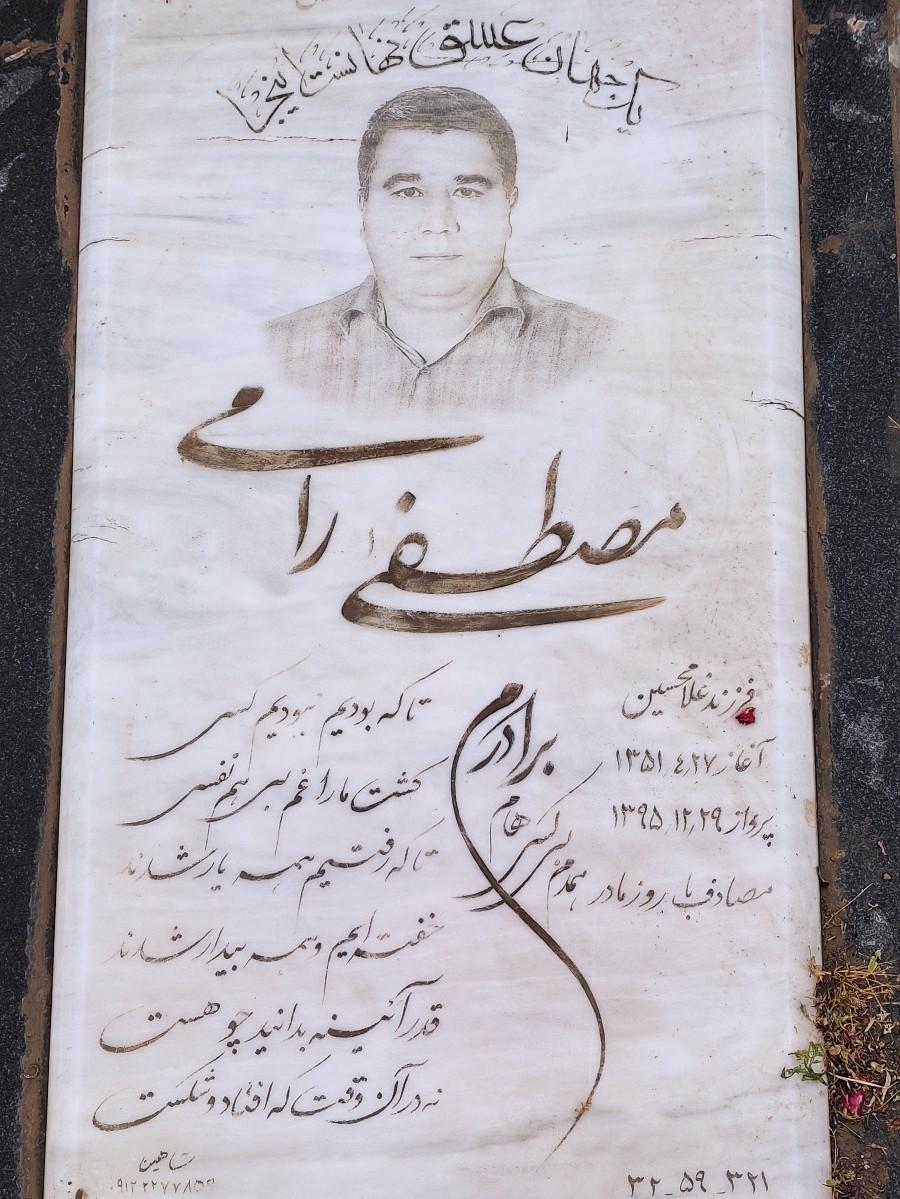 یک جهان عشق نهانست اینجا
مصطفی رامی
فرزند غلامحسین
آغاز ۱۳۵۱٫۴٫۲۷
پرواز ۱۳۹۵٫۱۲٫۲۹
مصادف با روز مادر
برادرم
همدم بی کسی هام
تا که بودیم نبودیم کسی
کشت ما را غم بی هم نفسی
تا که رفتیم همه یار شدند
خفته ایم و همه بیدار شدند
قدر آئینه بدانید چو هست
نه در آن وقت که افتاد و شکست
شاهین
۰۹۱۲۲۲۷۷۸۵۹
۳۲-۵۹-۳۲۱